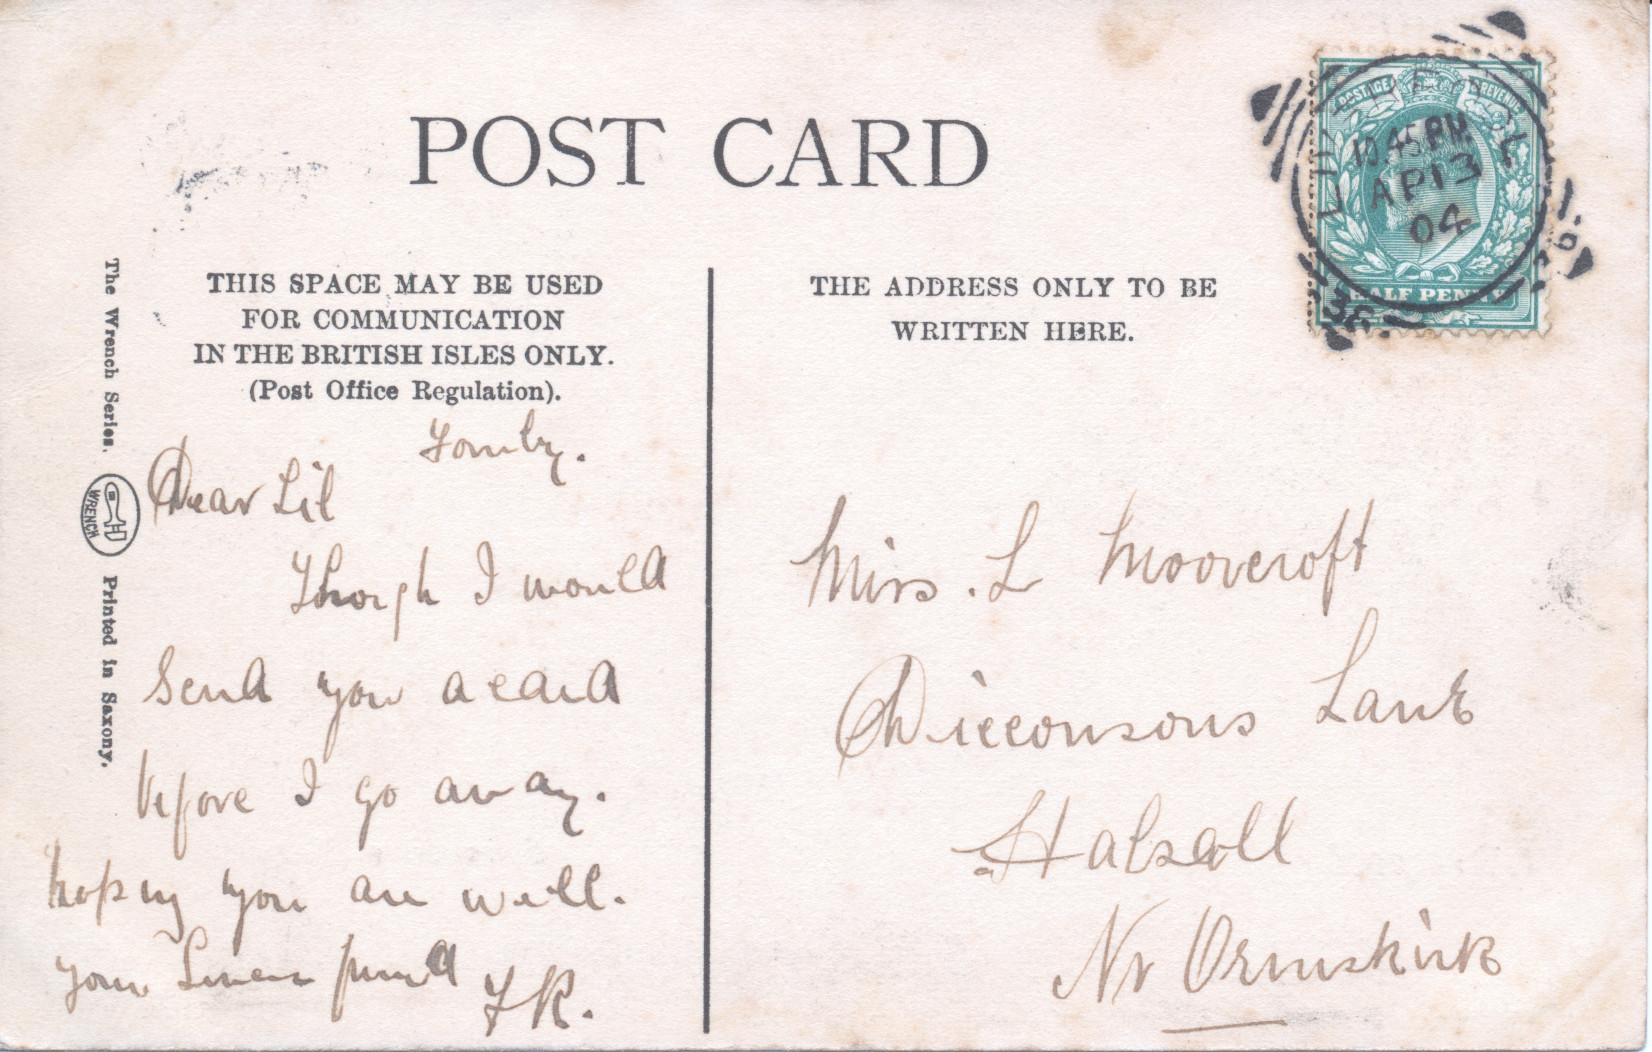 POST CARD
THIS SPACE MAY BE USED
FOR COMMUNICATION
IN THE BRITISH ISLES ONLY.
(Post Office Regulation).
Formby.
Dear Lil
Though I would
Send you a card
before I go away.
hoping you are well.
your Sincere friend
THE ADDRESS ONLY TO BE
WRITTEN HERE.
Miss. L Moorcroft
Dicconsons Lane
Halsall
Nr Ormskirk
The Wrench Series.
WRENCH
Printed in Saxony.
POSTAGE REVENUE
10.45 PM
AP 13
04
HALF PENNY